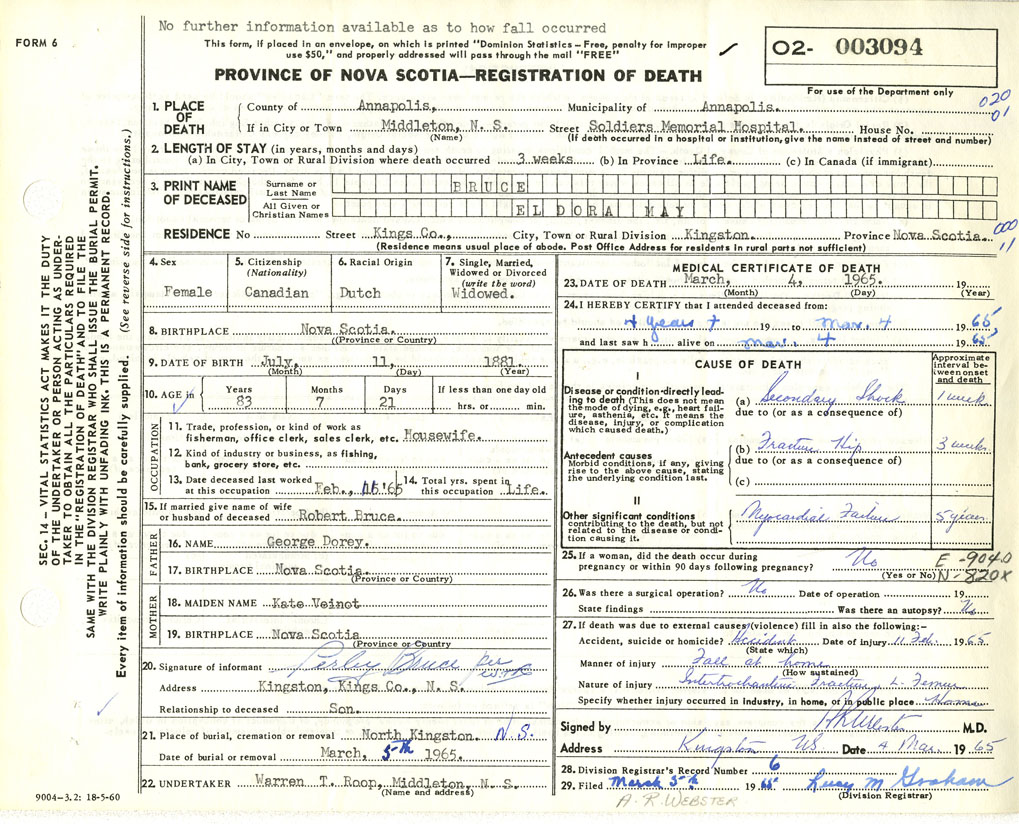 No further information available as to how fall occurred
FORM 6
This form, if placed in an envelope, on which is printed "Dominion Statistics – Free, penalty for improper
use $50," and properly addressed will pass through the mail "FREE"
PROVINCE OF NOVA SCOTIA—REGISTRATION OF DEATH
02- 003094
For use of the Department only
020
01
1. PLACE OF DEATH
County of Annapolis, Municipality of Annapolis.
If in City or Town Middleton, N. S. Street Soldiers Memorial Hospital. House No.
(Name) (If death occurred in a hospital or institution, give the name instead of street and number)
2. LENGTH OF STAY (in years, months and days)
(a) In City, Town or Rural Division where death occurred 3 weeks (b) In Province Life. (c) In Canada (if immigrant)
3. PRINT NAME OF DECEASED
Surname or Last Name BRUCE
All Given or Christian Names ELDORA MAY
RESIDENCE No Street Kings Co., City, Town or Rural Division Kingston. Province Nova Scotia.
000
11
(Residence means usual place of abode. Post Office Address for residents in rural parts not sufficient)
4. Sex
Female
5. Citizenship
(Nationality)
Canadian
6. Racial Origin
Dutch
7. Single, Married, Widowed or Divorced
(write the word)
Widowed.
8. BIRTHPLACE Nova Scotia.
(Province or Country)
9. DATE OF BIRTH July, 11, 1881.
(Month) (Day) (Year)
10. AGE in
Years Months Days If less than one day old
83 7 21 hrs. or min.
OCCUPATION
11. Trade, profession, or kind of work as
fisherman, office clerk, sales clerk, etc. Housewife.
12. Kind of industry or business, as fishing,
bank, grocery store, etc.
13. Date deceased last worked
at this occupation Feb., '65
14. Total yrs. spent in
this occupation Life.
15. If married give name of wife
or husband of deceased Robert Bruce.
FATHER
16. NAME George Dorey.
17. BIRTHPLACE Nova Scotia.
(Province or Country)
MOTHER
18. MAIDEN NAME Kate Veinot
19. BIRTHPLACE Nova Scotia
(Province or Country)
20. Signature of informant Perley Bruce per
Address Kingston, Kings Co., N. S.
Relationship to deceased Son.
21. Place of burial, cremation or removal North Kingston. N.S.
Date of burial or removal March, 5th 1965.
22. UNDERTAKER Warren T. Roop, Middleton, N. S.
(Name and address)
9004–3.2: 18-5-60
MEDICAL CERTIFICATE OF DEATH
23. DATE OF DEATH March, 4, 1965. 19
(Month) (Day) (Year)
24. I HEREBY CERTIFY that I attended deceased from:
4 years + 19 to Mar. 4 1965,
and last saw h alive on Mar. 4 1965
CAUSE OF DEATH
Approximate interval between onset and death
I
Disease or condition directly leading to death (This does not mean the mode of dying, e.g., heart failure, asthenia, etc. It means the disease, injury, or complication which caused death.)
(a) Secondary Shock 1 week
due to (or as a consequence of)
Antecedent causes
Morbid conditions, if any, giving rise to the above cause, stating the underlying condition last.
(b) Fracture Hip 3 weeks
due to (or as a consequence of)
(c)
II
Other significant conditions
contributing to the death, but not related to the disease or condition causing it.
Myocardial Failure 5 years
25. If a woman, did the death occur during
pregnancy or within 90 days following pregnancy? No
(Yes or No)
E-9040
N-820X
26. Was there a surgical operation? No Date of operation 19
State findings Was there an autopsy? No
27. If death was due to external causes (violence) fill in also the following:-
Accident, suicide or homicide? Accident Date of injury 11 Feb. 1965
(State which)
Manner of injury Fall at home
(How sustained)
Nature of injury Intertrochanteric Fracture L. Femur
Specify whether injury occurred in industry, in home, or in public place Home
Signed by M.D.
Address Kingston NS Date 4 Mar. 1965
28. Division Registrar's Record Number 6
29. Filed March 5th 1965 Lucy M Graham
(Division Registrar)
A. R. WEBSTER
SEC. 14 – VITAL STATISTICS ACT MAKES IT THE DUTY
OF THE UNDERTAKER OR PERSON ACTING AS UNDER-
TAKER TO OBTAIN ALL THE PARTICULARS REQUIRED
IN THE "REGISTRATION OF DEATH" AND TO FILE THE
SAME WITH THE DIVISION REGISTRAR WHO SHALL ISSUE THE BURIAL PERMIT.
WRITE PLAINLY WITH UNFADING INK. THIS IS A PERMANENT RECORD.
Every item of information should be carefully supplied. (See reverse side for instructions.)